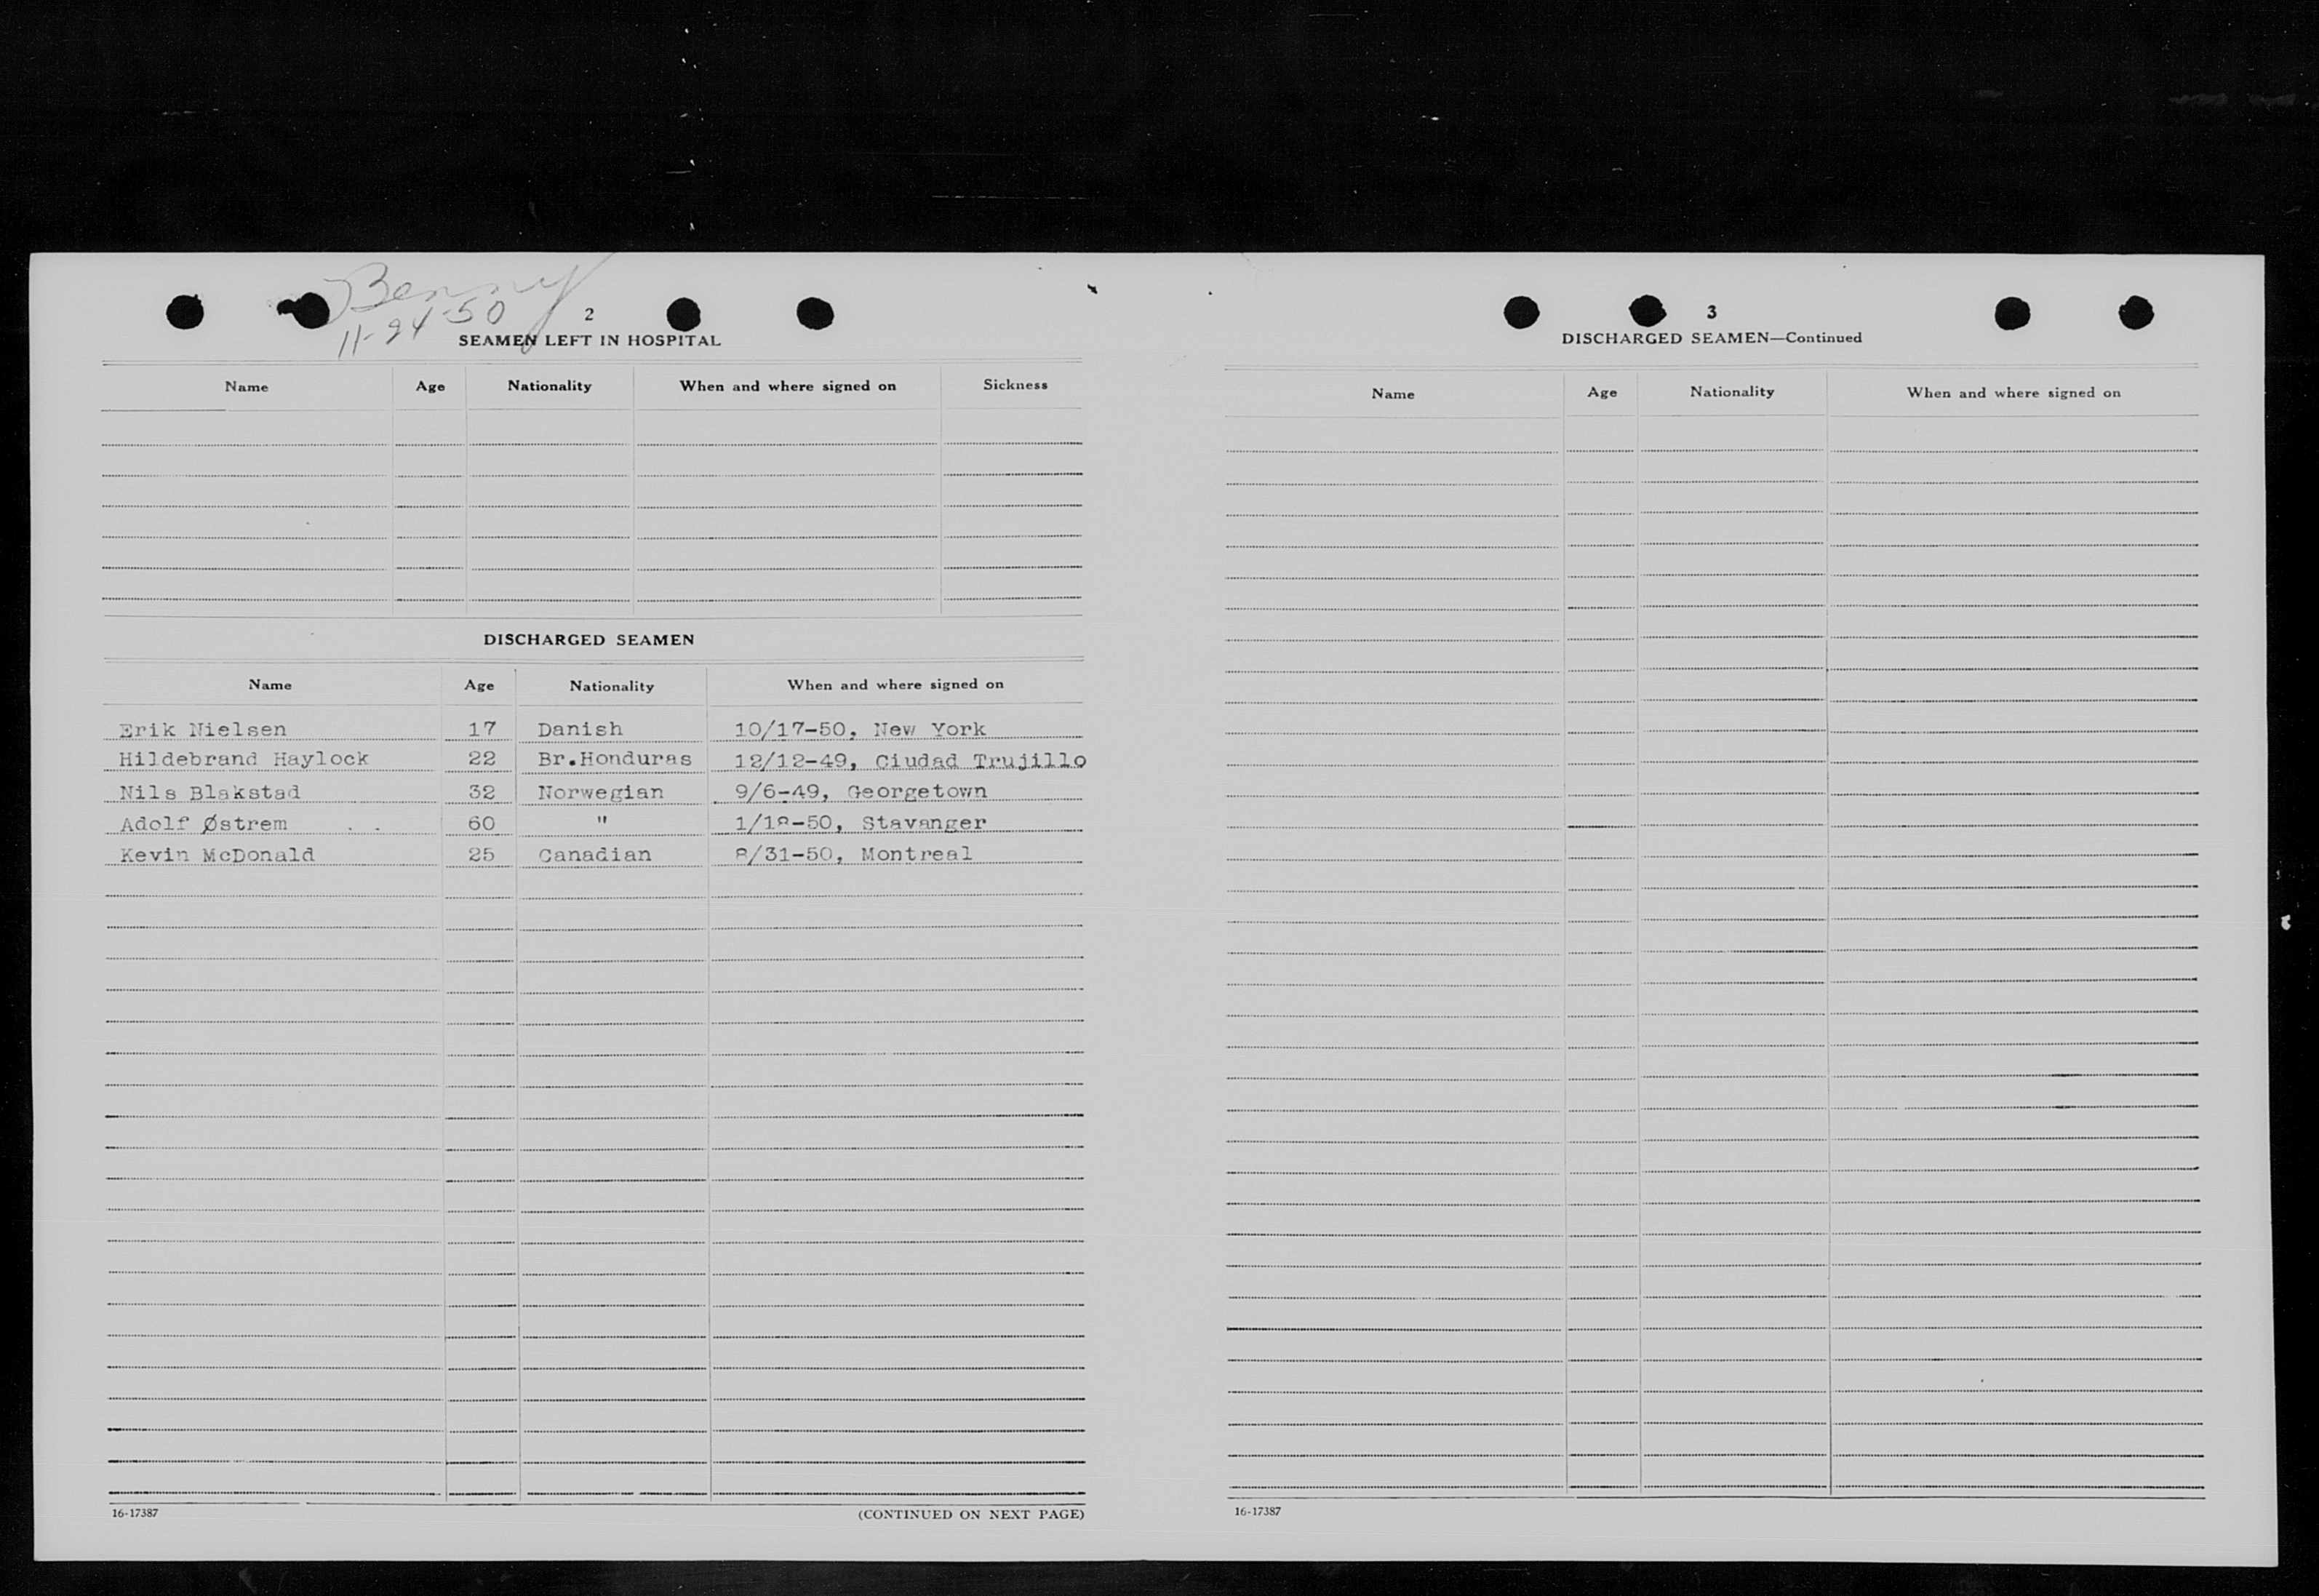 Benny
11-24-50
2
SEAMEN LEFT IN HOSPITAL
Name Age Nationality When and where signed on Sickness
DISCHARGED SEAMEN
Name Age Nationality When and where signed on
Erik Nielsen 17 Danish 10/17-50, New York
Hildebrand Haylock 22 Br.Honduras 12/12-49, Ciudad Trujillo
Nils Blakstad 32 Norwegian 9/6-49, Georgetown
Adolf Østrem 60 " 1/18-50, Stavanger
Kevin McDonald 25 Canadian 8/31-50, Montreal
16-17387 (CONTINUED ON NEXT PAGE)
3
DISCHARGED SEAMEN—Continued
Name Age Nationality When and where signed on
16-17387